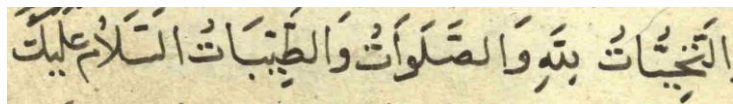 اَلتَّحِيَّاتُ لِلّٰهِ وَالصَّلَوَاتُ وَالطَّيِّبَاتُ اَلسَّلَامُ عَلَيْكَ